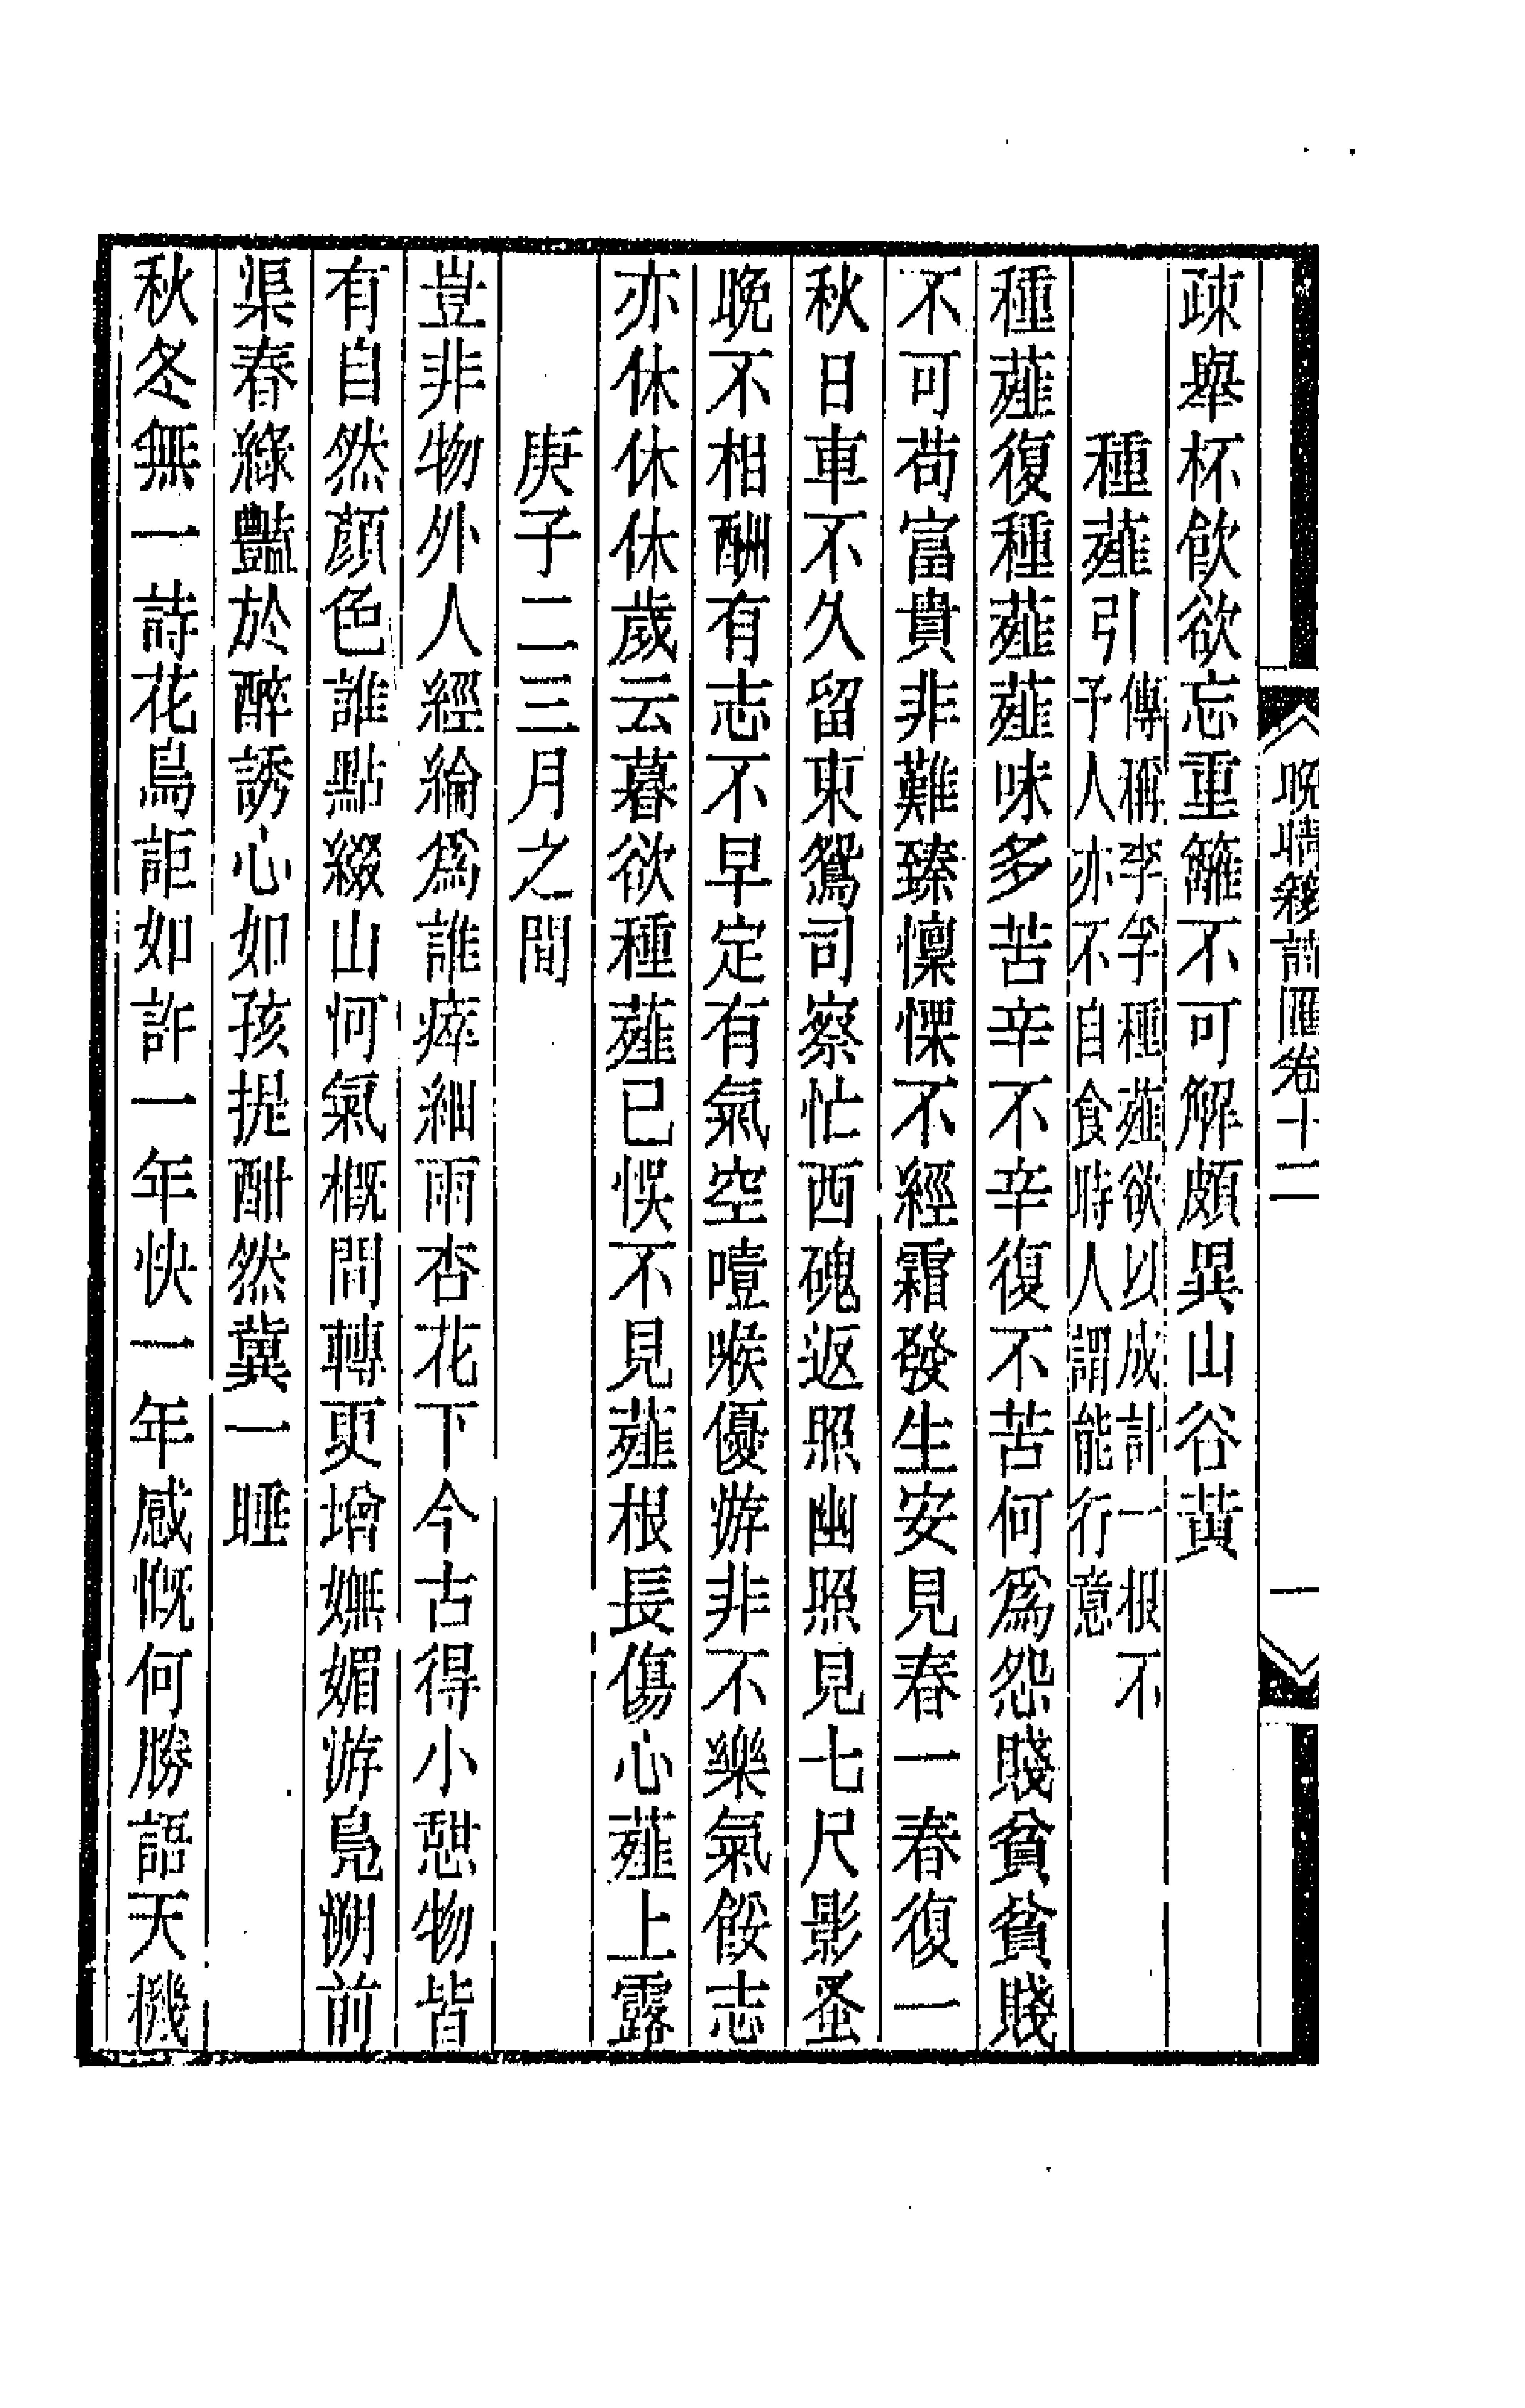 晚晴簃詩匯卷十二
一
疎舉杯飮欲忘重籬不可解頗異山谷黃
種薤引
傳稱李孚種薤欲以成計一根不
予人亦不自食時人謂能行意
種薤復種薤薤味多苦辛不辛復不苦何爲怨賤貧貧賤
不可苟富貴非難臻懍慄不經霜發生安見春一春復一
秋日車不久留東鴛司察忙西魂返照幽照見七尺影蚤
晚不相酬有志不早定有氣空噎喉優游非不樂氣餒志
亦休休休歲云暮欲種薤已悞不見薤根長傷心薤上露
庚子二三月之間
豈非物外人經綸爲誰瘁細雨杏花下今古得小憩物皆
有自然顏色誰點綴山何氣槪閒轉更增嫵媚游鳧溯前
渠春綠豔於醉誘心如孩提酣然冀一睡
秋冬無一詩花鳥詎如許一年快一年感慨何勝語天機